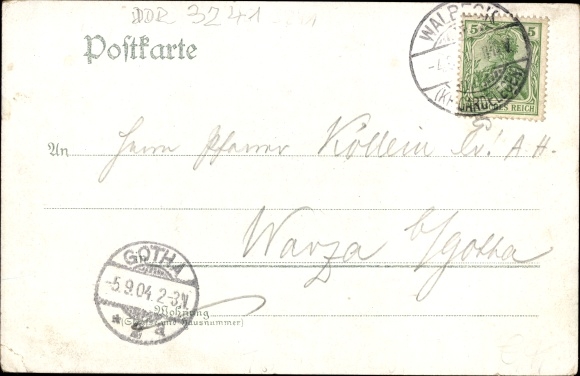 DDR 3241
Postkarte
WALBECK
(Kr. GARDELEGEN)
5 5
REICH
An Herrn Pfarrer Köllein A. H.
Warza b/Gotha
GOTHA
-5.9.04. 2-3N.
* 2 a
Wohnung
(Straße und Hausnummer)